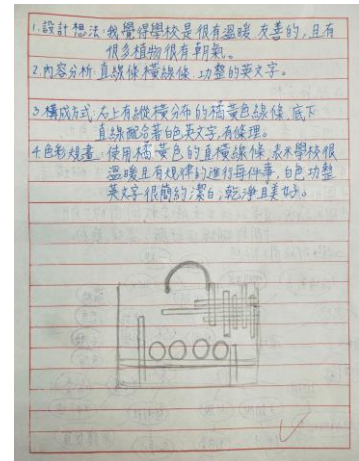 1.設計想法:我覺得學校是很有溫暖、友善的,且有
很多植物很有朝氣。
2.內容分析:直線條橫線條、功整的英文字。
3.構成方式:右上有縱橫分布的橘黃色線條,底下
直線配合著白色英文字,有條理。
4.色彩規畫:使用橘黃色的直橫線條,表示學校很
溫暖且有規律的進行每件事,白色功整
英文字很簡約潔白,乾淨且美好。